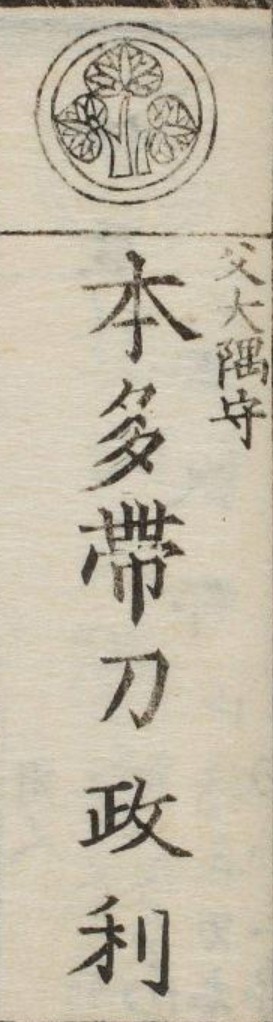 父大隅守
本多帶刀政利